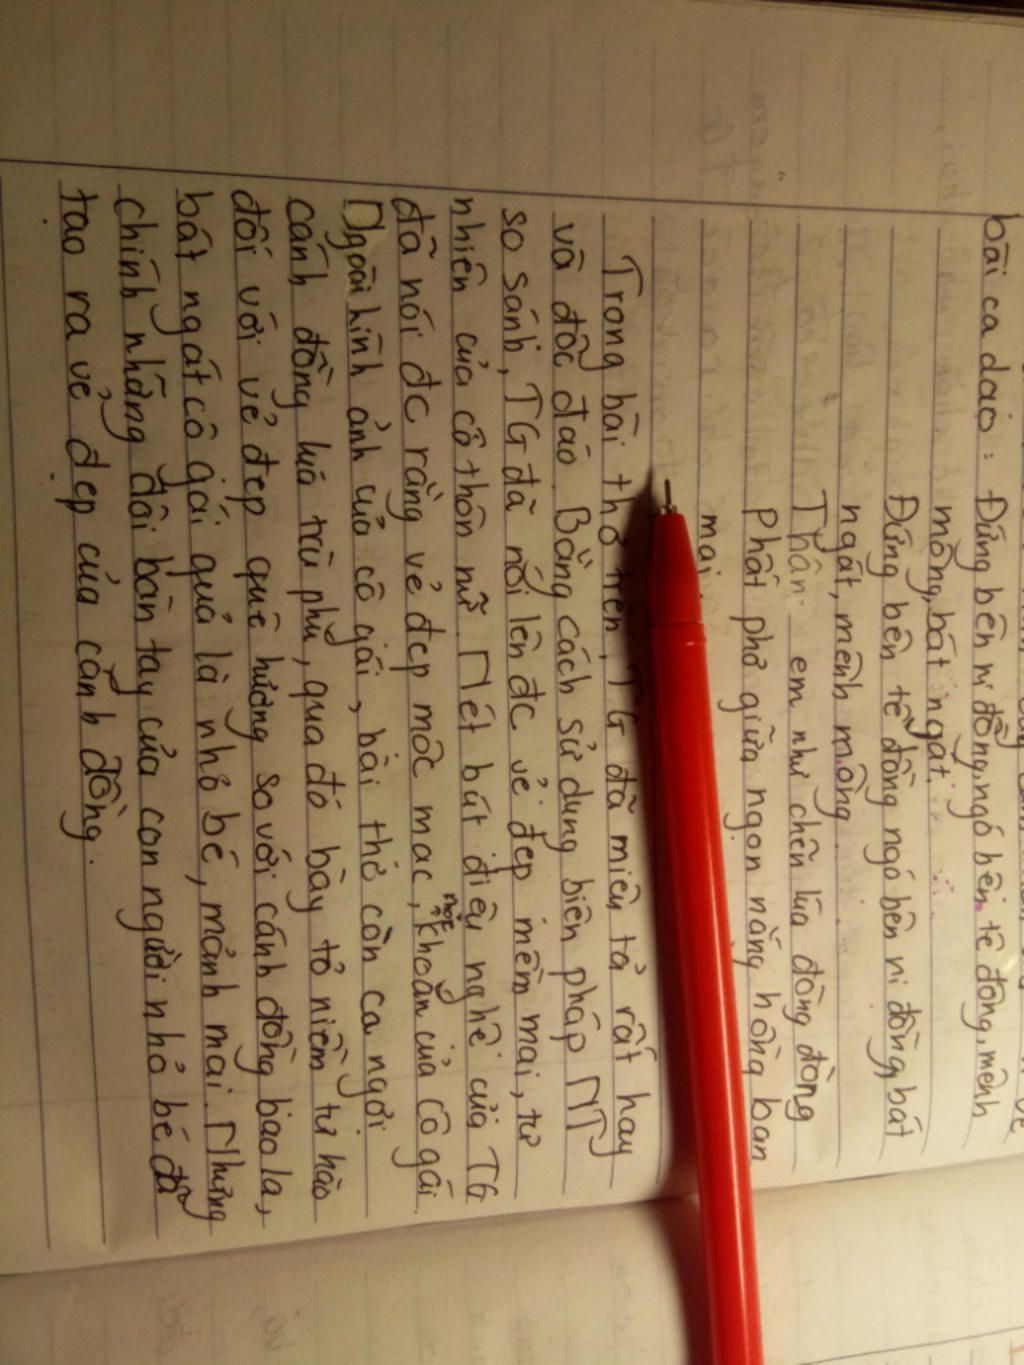 bài ca dao: Đứng bên ni đồng, ngó bên tê đồng, mênh
mông, bát ngát.
Đứng bên tê đồng ngó bên ni đồng, bát
ngát, mênh mông
Thân em như chẽn lúa đòng đòng
Phất phơ giữa ngọn nắng hồng ban
mai
Trong bài thơ trên, TG đã miêu tả rất hay
và độc đáo. Bằng cách sử dụng biện pháp NT
so sánh, TG đã nói lên đc vẻ đẹp mềm mại, tự
nhiên của cô thôn nữ. Nét bút điệu nghệ của TG
đã nói đc rằng vẻ đẹp mộc mạc, khoắn của cô gái.
Ngoài hình ảnh của cô gái, bài thơ còn ca ngợi
cánh đồng lúa trù phú, qua đó bày tỏ niềm tự hào
đối với vẻ đẹp quê hương so với cánh đồng bao la,
bát ngát cô gái quả là nhỏ bé, mảnh mai. Nhưng
chính những đôi bàn tay của con người nhỏ bé đã
tạo ra vẻ đẹp của cánh đồng.